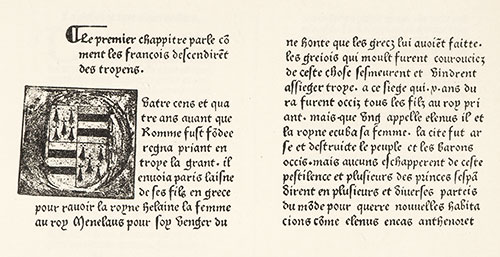 Le premier chappitre parle cõ
ment les francois descendirẽt
des troyens.
Quatre cens et qua
tre ans auant que
Romme fust fõdee
regna priant en
troye la grant. il
enuoia paris laisne
de ses filz en grece
pour rauoir la royne helaine la femme
au roy Menelaus pour soy venger du
ne honte que les grecz lui auoiẽt faitte.
les greiois qui moult furent courouciez
de ceste chose sesmeurent et vindrent
assieger troye. a ce siege qui .x. ans du
ra furent occiz tous les filz au roy pri
ant. mais que vng appelle elenus il et
la royne ecuba sa femme. la cite fut ar
se et destruicte le peuple et les barons
occis. mais aucuns eschapperent de ceste
pestilence et plusieurs des princes sespã
dirent en plusieurs et diuerses parteis
du mõde pour querre nouuelles habita
cions cõme elenus eneas anthenoret